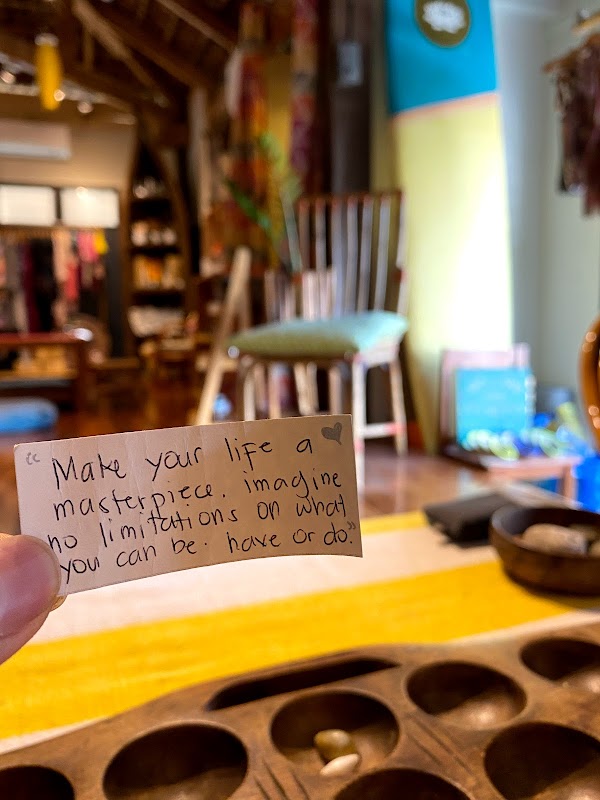 "Make your life a
masterpiece. imagine
no limitations on what
you can be. have or do."